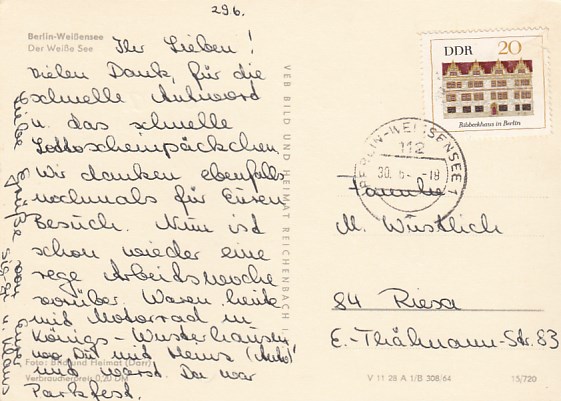 296.
Berlin-Weißensee
Der Weiße See
Ihr Lieben!
vielen Dank, für die
schnelle Antword
u. das schnelle
Lottoscheinpäckchen.
Wir danken ebenfalls
nochmals für Euren
Besuch. Nun ist
schon wieder eine
rege Arbeitswoche
vorüber. Waren heute
mit Motorrad in
Königs-Wusterhausen
wo Du mit Heinz (Auto)
und warst. Da war
Parkfest.
Liebe Grüße von Eurer
u. Klaus
Foto: Bild und Heimat (Darr)
Verbraucherpreis 0,20 DM
VEB BILD UND HEIMAT REICHENBACH I.
DDR 20
Ribbeckhaus in Berlin
BERLIN-WEISSENSEE 1
112
30. 6. -18
Familie
M. Wüstlich
84 Riesa
E.-Thälmann-Str. 83
V 11 28 A 1/B 308/64
15/720